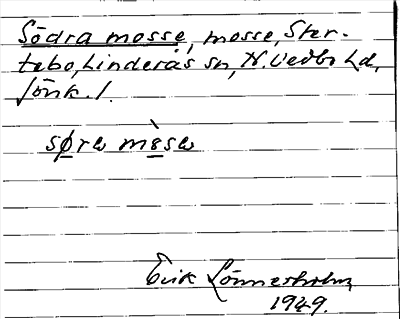 Södra mosse, mosse, Ster-
tebo, Linderås sn, N. Vedbo hd,
Jönk. l.
søra mòsa
Erik Lönnerholm
1949.